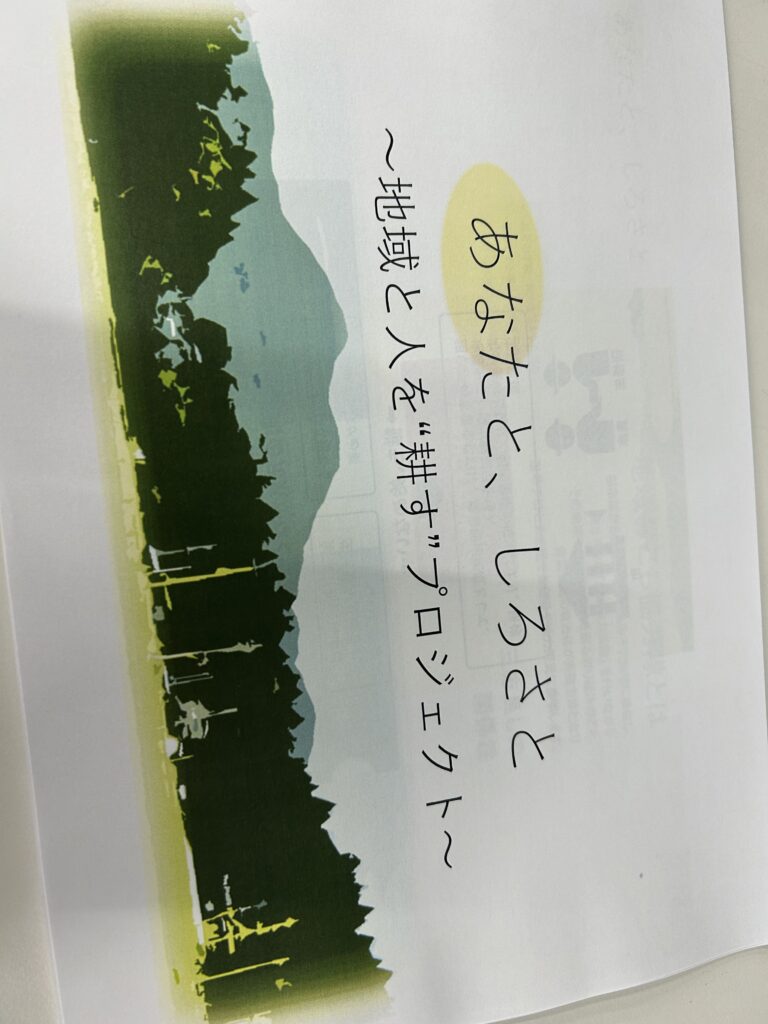 あなたと、しろさと
～地域と人を“耕す”プロジェクト～